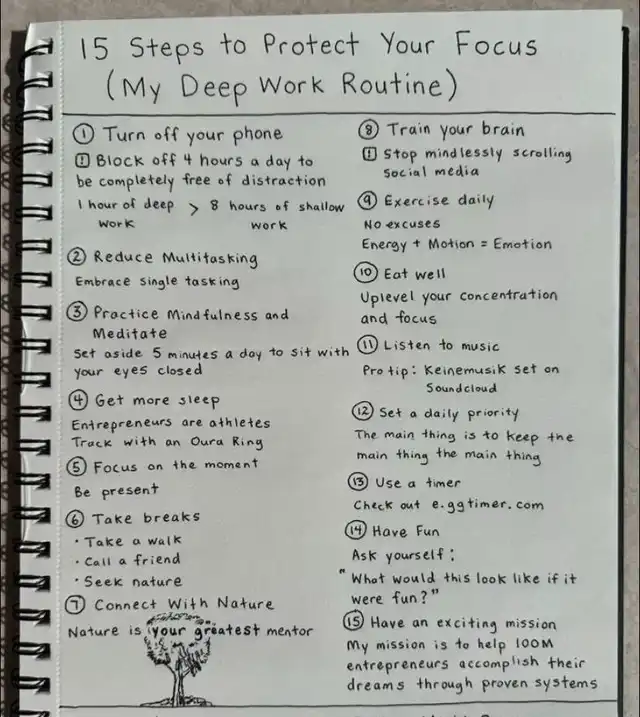 15 Steps to Protect Your Focus
(My Deep Work Routine)
① Turn off your phone
! Block off 4 hours a day to
be completely free of distraction
1 hour of deep > 8 hours of shallow
work work
② Reduce Multitasking
Embrace single tasking
③ Practice Mindfulness and
Meditate
Set aside 5 minutes a day to sit with
your eyes closed
④ Get more sleep
Entrepreneurs are athletes
Track with an Oura Ring
⑤ Focus on the moment
Be present
⑥ Take breaks
• Take a walk
• Call a friend
• Seek nature
⑦ Connect With Nature
Nature is your greatest mentor
⑧ Train your brain
! Stop mindlessly scrolling
social media
⑨ Exercise daily
No excuses
Energy + Motion = Emotion
⑩ Eat well
Uplevel your concentration
and focus
⑪ Listen to music
Pro tip: Keinemusik set on
Soundcloud
⑫ Set a daily priority
The main thing is to keep the
main thing the main thing
⑬ Use a timer
Check out e.ggtimer.com
⑭ Have Fun
Ask yourself:
"What would this look like if it
were fun?"
⑮ Have an exciting mission
My mission is to help 100M
entrepreneurs accomplish their
dreams through proven systems